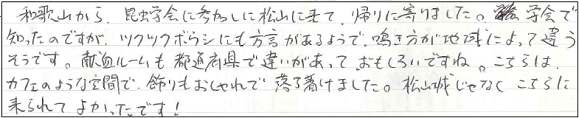 和歌山から、昆虫学会に参加しに松山に来て、帰りに寄りました。学会で
知ったのですが、ツクツクボウシにも方言があるようで、鳴き方が地域によって違う
そうです。献血ルームも都道府県で違いがあって、おもしろいですね。こちらは、
カフェのような空間で、飾りもおしゃれで落ち着けました。松山城じゃなく こちらに
来られてよかったです！